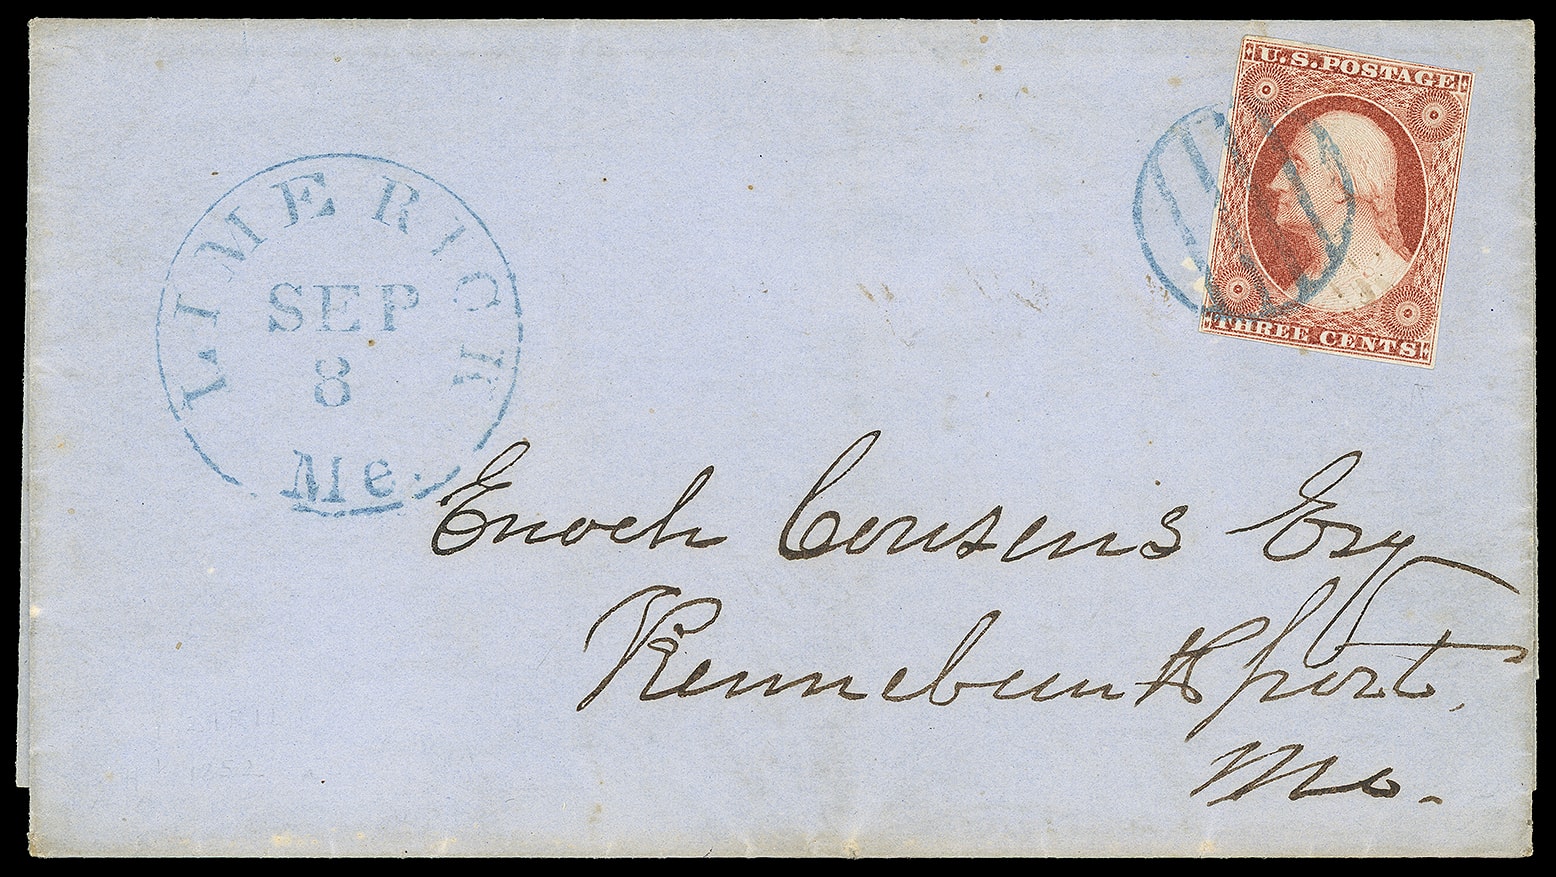 LIMERICK
SEP
8
Me.
U.S. POSTAGE
THREE CENTS
Enoch Cousens Esq
Kennebunkport,
Me.
1852